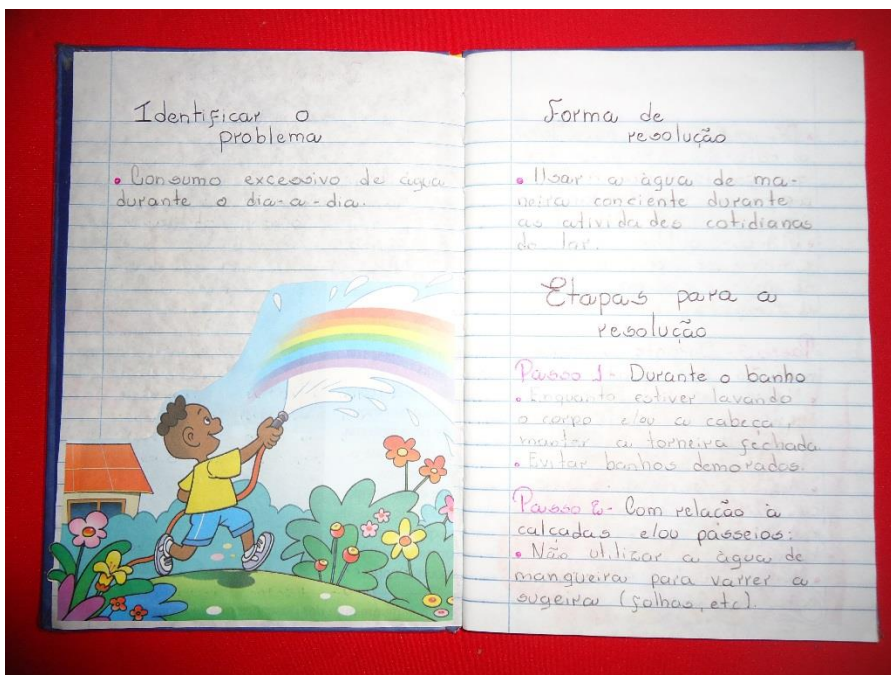 Identificar o
problema
• Consumo excessivo de água
durante o dia-a-dia.
Forma de
resolução
• Usar a àgua de ma-
neira conciente durante
as atividades cotidianas
do lar.
Etapas para a
resolução
Passo 1- Durante o banho
• Enquanto estiver lavando
o corpo e/ou a cabeça,
manter a torneira fechada
• Evitar banhos demorados.
Passo 2- Com relação à
calçadas e/ou passeios:
• Não utilizar a àgua de
mangueira para varrer a
sugeira (folhas, etc).